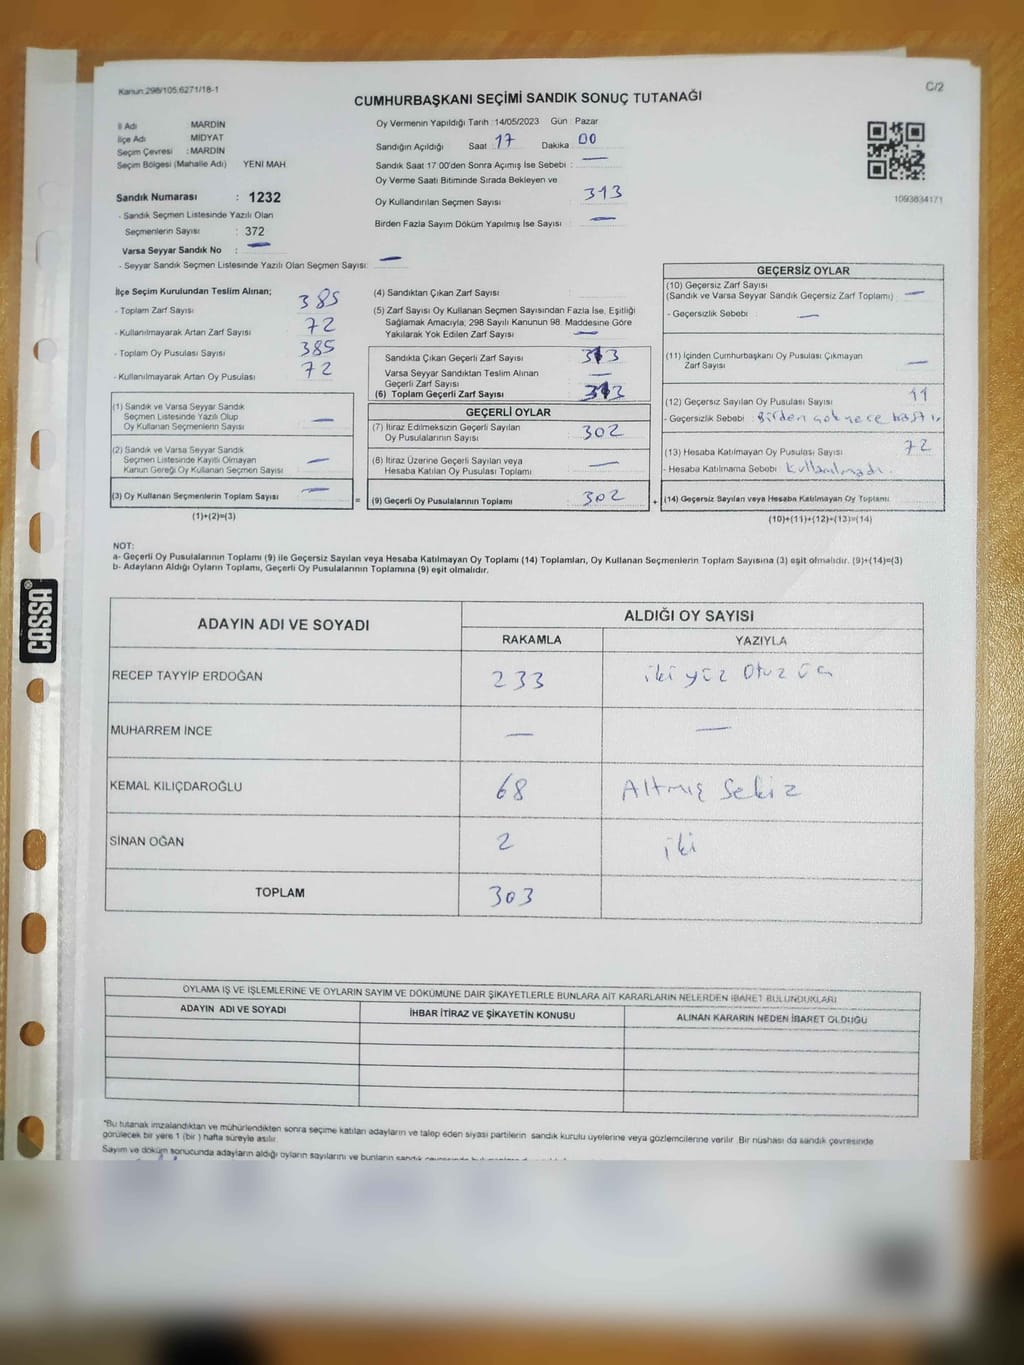 Kanun:298/105:6271/18-1
C/2
CUMHURBAŞKANI SEÇİMİ SANDIK SONUÇ TUTANAĞI
İl Adı MARDİN
İlçe Adı MİDYAT
Seçim Çevresi : MARDİN
Seçim Bölgesi (Mahalle Adı) YENİ MAH
Sandık Numarası : 1232
- Sandık Seçmen Listesinde Yazılı Olan
Seçmenlerin Sayısı : 372
Varsa Seyyar Sandık No : —
- Seyyar Sandık Seçmen Listesinde Yazılı Olan Seçmen Sayısı: —
Oy Vermenin Yapıldığı Tarih :14/05/2023 Gün : Pazar
Sandığın Açıldığı Saat : 17 Dakika : 00
Sandık Saat 17:00'den Sonra Açımış İse Sebebi : —
Oy Verme Saati Bitiminde Sırada Bekleyen ve
Oy Kullandırılan Seçmen Sayısı : 313
Birden Fazla Sayım Döküm Yapılmış İse Sayısı : —
1093634171
İlçe Seçim Kurulundan Teslim Alınan;
- Toplam Zarf Sayısı 385
- Kullanılmayarak Artan Zarf Sayısı 72
- Toplam Oy Pusulası Sayısı 385
- Kullanılmayarak Artan Oy Pusulası 72
(1) Sandık ve Varsa Seyyar Sandık
Seçmen Listesinde Yazılı Olup
Oy Kullanan Seçmenlerin Sayısı : —
(2) Sandık ve Varsa Seyyar Sandık
Seçmen Listesinde Kayıtlı Olmayan
Kanun Gereği Oy Kullanan Seçmen Sayısı : —
(3) Oy Kullanan Seçmenlerin Toplam Sayısı : —
(1)+(2)=(3)
=
(4) Sandıktan Çıkan Zarf Sayısı :
(5) Zarf Sayısı Oy Kullanan Seçmen Sayısından Fazla İse, Eşitliği
Sağlamak Amacıyla, 298 Sayılı Kanunun 98. Maddesine Göre
Yakılarak Yok Edilen Zarf Sayısı : —
Sandıkta Çıkan Geçerli Zarf Sayısı : 313
Varsa Seyyar Sandıktan Teslim Alınan
Geçerli Zarf Sayısı : —
(6) Toplam Geçerli Zarf Sayısı : 313
GEÇERLİ OYLAR
(7) İtiraz Edilmeksizin Geçerli Sayılan
Oy Pusulalarının Sayısı : 302
(8) İtiraz Üzerine Geçerli Sayılan veya
Hesaba Katılan Oy Pusulası Toplamı : —
(9) Geçerli Oy Pusulalarının Toplamı : 302
+
GEÇERSİZ OYLAR
(10) Geçersiz Zarf Sayısı
(Sandık ve Varsa Seyyar Sandık Geçersiz Zarf Toplamı) : —
- Geçersizlik Sebebi : —
(11) İçinden Cumhurbaşkanı Oy Pusulası Çıkmayan
Zarf Sayısı : —
(12) Geçersiz Sayılan Oy Pusulası Sayısı : 11
- Geçersizlik Sebebi : Birden
(13) Hesaba Katılmayan Oy Pusulası Sayısı : 72
- Hesaba Katılmama Sebebi : Kullanılmadı.
(14) Geçersiz Sayılan veya Hesaba Katılmayan Oy Toplamı :
(10)+(11)+(12)+(13)=(14)
NOT:
a- Geçerli Oy Pusulalarının Toplamı (9) ile Geçersiz Sayılan veya Hesaba Katılmayan Oy Toplamı (14) Toplamları, Oy Kullanan Seçmenlerin Toplam Sayısına (3) eşit olmalıdır. (9)+(14)=(3)
b- Adayların Aldığı Oyların Toplamı, Geçerli Oy Pusulalarının Toplamına (9) eşit olmalıdır.
CASSA®
ADAYIN ADI VE SOYADI ALDIĞI OY SAYISI
RAKAMLA YAZIYLA
RECEP TAYYİP ERDOĞAN 233 iki yüz Otuz üç
MUHARREM İNCE — —
KEMAL KILIÇDAROĞLU 68 Altmış Sekiz
SİNAN OĞAN 2 iki
TOPLAM 303
OYLAMA İŞ VE İŞLEMLERİNE VE OYLARIN SAYIM VE DÖKÜMÜNE DAİR ŞİKAYETLERLE BUNLARA AİT KARARLARIN NELERDEN İBARET BULUNDUKLARI
ADAYIN ADI VE SOYADI İHBAR İTİRAZ VE ŞİKAYETİN KONUSU ALINAN KARARIN NEDEN İBARET OLDUĞU
"Bu tutanak imzalandıktan ve mühürlendikten sonra seçime katılan adayların ve talep eden siyasi partilerin sandık kurulu üyelerine veya gözlemcilerine verilir. Bir nüshası da sandık çevresinde
görülecek bir yere 1 (bir ) hafta süreyle asılır.
Sayım ve döküm sonucunda adayların aldığı oyların sayılarını ve bunların sandık